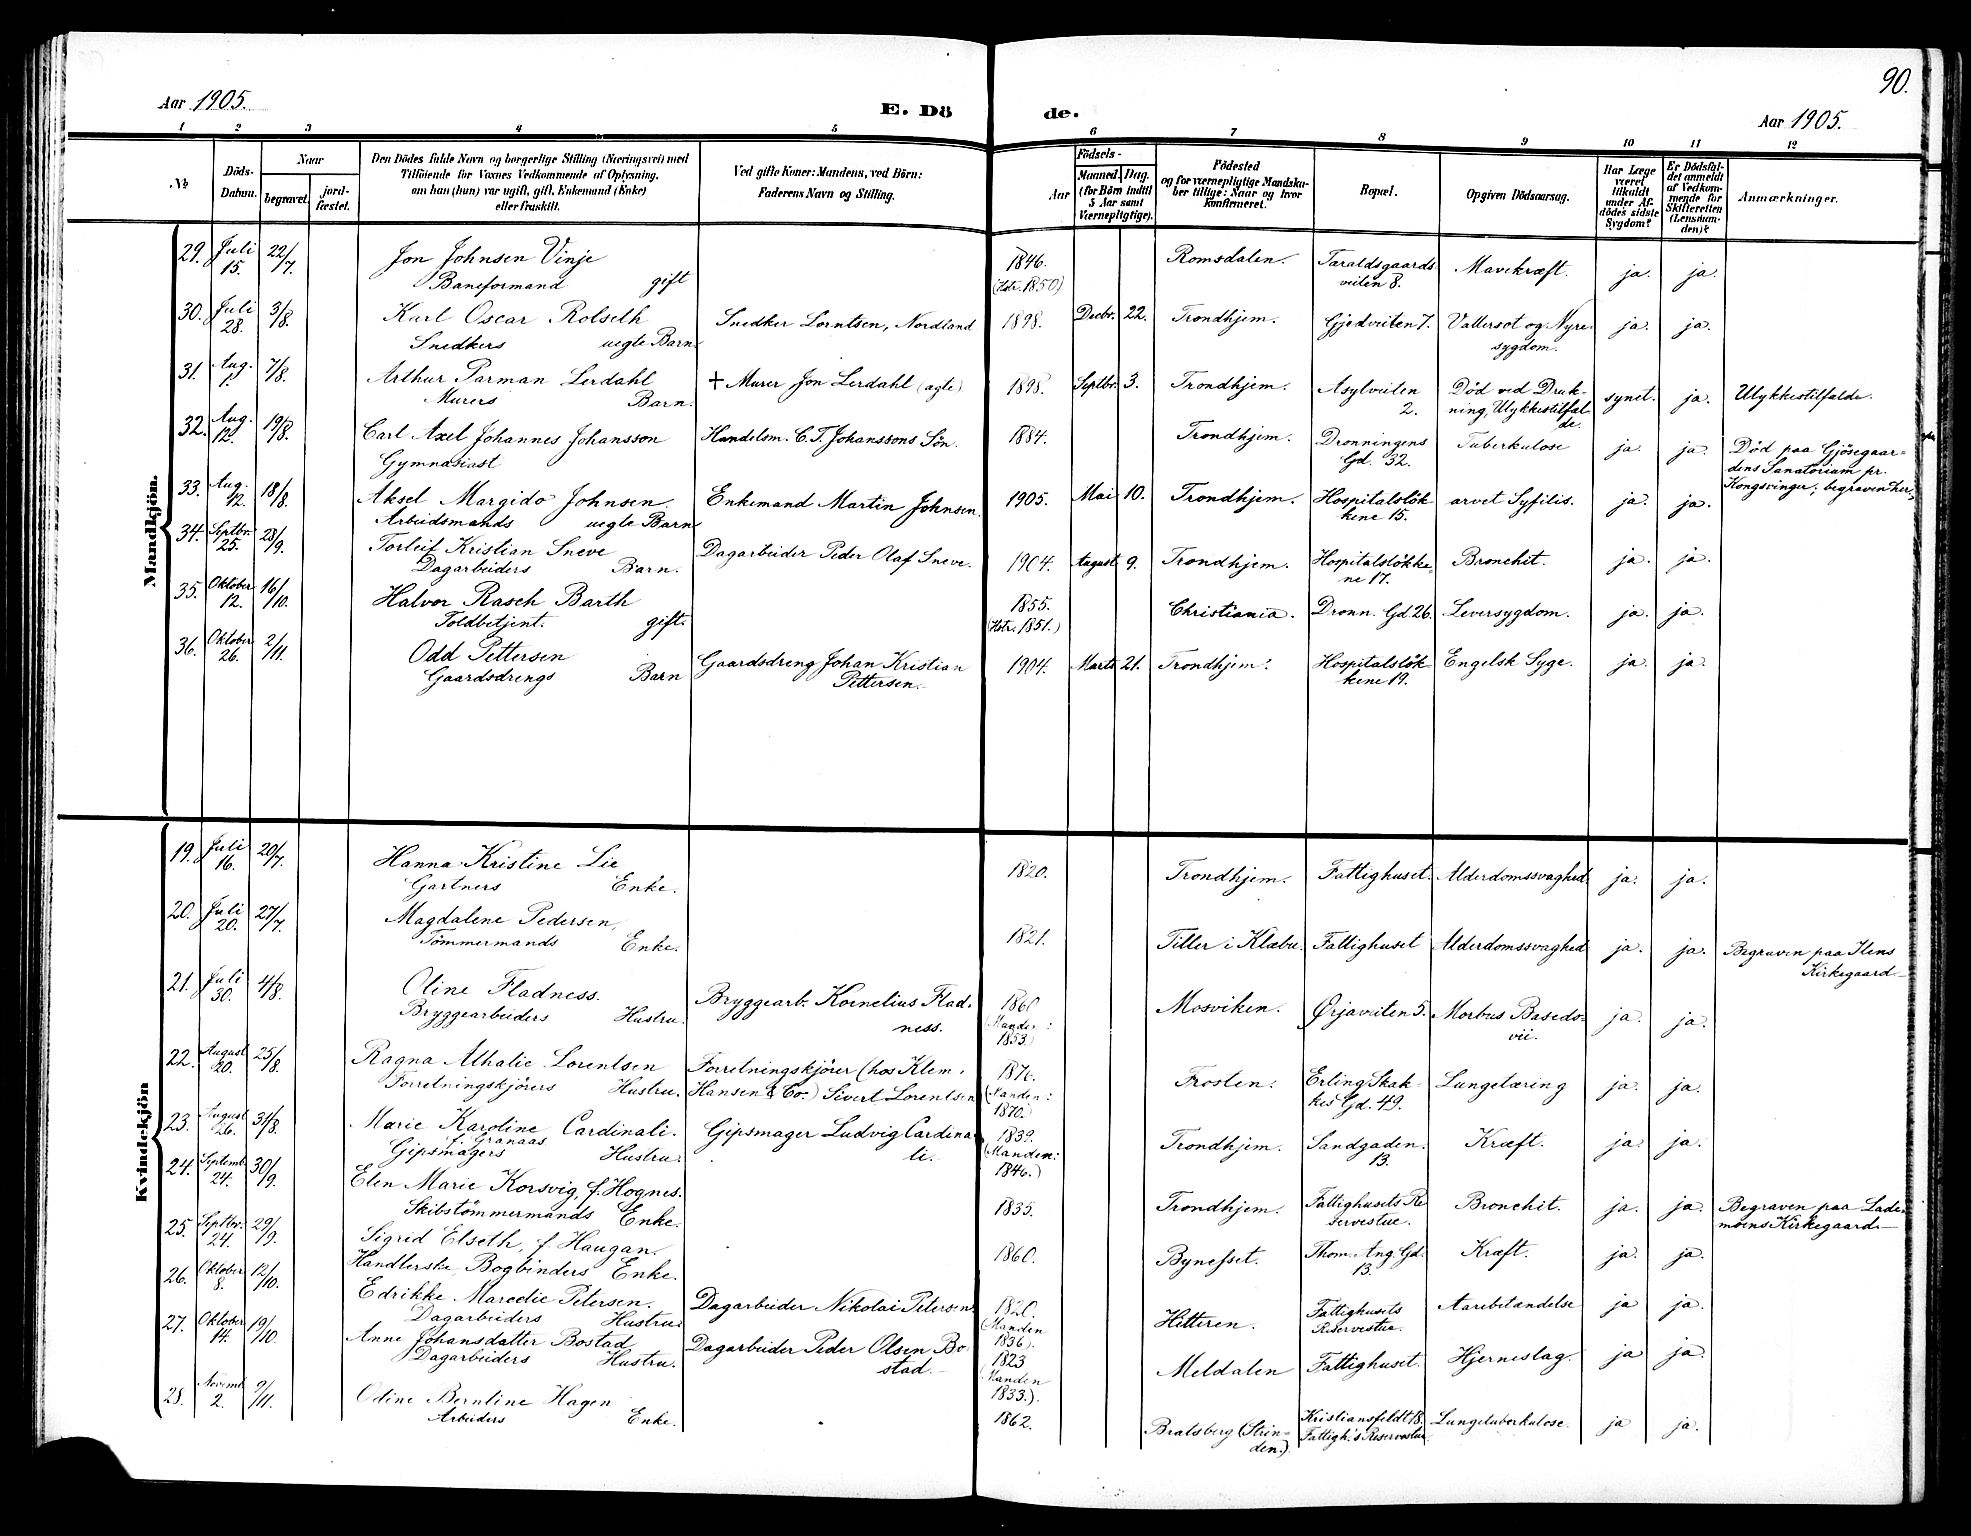 90.
Aar 1905.
E. Dö de.
Aar 1905.
1 2 3 4 5 6 7 8 9 10 11 12
№
Döds-Datum.
Naar
begravet.
jord-fæstet.
Den Dödes fulde Navn og borgerlige Stilling (Næringsvei) med
Tilföiende for Voxnes Vedkommende af Oplysning,
om han (hun) var ugift, gift, Enkemand (Enke)
eller fraskilt.
Ved gifte Koner: Mandens, ved Börn:
Faderens Navn og Stilling.
Födsels-
Aar
Maaned. Dag.
(for Börn indtil
5 Aar samt
Værnepligtige).
Födested
og for værnepligtige Mandska-
ber tillige: Naar og hvor
konfirmeret.
Bopæl.
Opgiven Dödsaarsag.
Har Læge
været
tilkaldt
under Af-
dödes sidste
Sygdom?
Er Dödsfal-
det anmeldt
af Vedkom-
mende for
Skifteretten
(Lensman-
den)?
Anmærkninger.
Mandkjön.
29. Juli 15. 22/7. Jon Johnsen Vinje 1846. Romsdalen. Taraldsgaards- Mavekræft. ja. ja.
Baneformand gift (Hstr. 1850) veiten 8.
30. Juli 28. 3/8. Karl Oscar Rolseth Snedker Lorntsen, Nordland 1898. Decbr. 22. Trondhjem. Gjedveiten 7. Vattersot og Nyre- ja. ja.
Snedkers uegte Barn. sygdom.
31. Aug. 1. 7/8. Arthur Parman Lerdahl + Murer Jon Lerdahl (ægte) 1898. Septbr. 3. Trondhjem. Asylveiten Död ved Druk- synet. ja. Ulykkestilfælde.
Murers Barn. 2. ning, Ulykkestilfæl-
de.
32. Aug. 12. 19/8. Carl Axel Johannes Johansson Handelsm. C. T. Johanssons Sön. 1884. Trondhjem. Dronningens Tuberkulose ja. ja. Död paa Gjösegaar-
Gymnasiast Gd. 32. dens Sanatorium pr.
Kongsvinger; begraven her.
33. Aug. 12. 18/8. Aksel Margido Johnsen Enkemand Martin Johnsen. 1905. Mai 10. Trondhjem. Hospitalslök- arvet Syfilis. ja. ja.
Arbeidsmands uegte Barn kene 15.
34. Septbr. 25. 28/9. Torleif Kristian Sneve Dagarbeider Peder Olaf Sneve. 1904. August 9. Trondhjem. Hospitalslökke- Bronchit. ja. ja.
Dagarbeiders Barn. ne 17.
35. Oktober 12. 16/10. Halvor Rasch Barth 1855. Christiania. Dronn. Gd 26. Leversygdom. ja. ja.
Toldbetjent. gift. (Hstr. 1851.)
36. Oktober 26. 2/11. Odd Pettersen Gaardsdreng Johan Kristian 1904. Marts 21. Trondhjem. Hospitalslök- Engelsk Syge. ja. ja.
Gaardsdrengs Barn Pettersen. kene 19.
Kvindekjön
19. Juli 16. 20/7. Hanna Kristine Lie 1820. Trondhjem. Fattighuset. Alderdomssvaghed. ja. ja.
Gartners Enke.
20. Juli 20. 27/7. Magdalene Pedersen, 1821. Tiller i Klæbu. Fattighuset Alderdomssvaghed ja. ja. Begraven paa Ilens
Tömmermands Enke. Kirkegaard
21. Juli 30. 4/8. Oline Fladness. Bryggearb. Kornelius Flad- 1860 Mosviken. Ørjaveiten 5. Morbus Basedo- ja. ja.
Bryggearbeiders Hustru. ness. (Manden: 1853.) vii.
22. August 20. 25/8. Ragna Athalie Lorentsen Forretningskjörer (hos Klem. 1876. Frosten. Erling Skak- Lungetæring ja. ja.
Forretningskjörers Hustru. Hansen & Co.) Sivert Lorentsen (Manden: 1870.) kes Gd. 49.
23. August 26. 31/8. Marie Karoline Cardinali. Gipsmager Ludvig Cardina- 1839. Trondhjem. Sandgaden. Kræft. ja. ja.
f. Granaas
Gipsmagers Hustru. li. (Manden: 1846.) 13.
24. Septemb. 24. 30/9. Elen Marie Korsvig, f. Hognes. 1835. Trondhjem. Fattighusets Re- Bronchit. ja. ja. Begraven paa Lade-
Skibstömmermands Enke. servestue. moens Kirkegaard
25. Septbr. 24. 29/9. Sigrid Elseth, f. Haugan. 1860. Bynesset. Thom. Ang. Gd. Kræft. ja. ja.
Handlerske, Bogbinders Enke. 13.
26. Oktober 8. 12/10. Edrikke Marcelie Petersen. Dagarbeider Nikolai Petersen. 1820. Hitteren. Fattighusets Aarebetændelse ja ja.
Dagarbeiders Hustru. (Manden 1836). Reservestue.
27. Oktober 14. 19/10. Anne Johansdatter Bostad Dagarbeider Peder Olsen Bo- 1823 Meldalen Fattighuset. Hjerneslag. ja ja.
Dagarbeiders Hustru. stad. (Manden 1833.).
28. Novemb. 2. 9/11. Odine Berntine Hagen 1862. Bratsberg (Strin- Kristiansfeldt 18. Lungetuberkulose. ja ja.
Arbeiders Enke. den.). Fattigh.'s Reservestue.